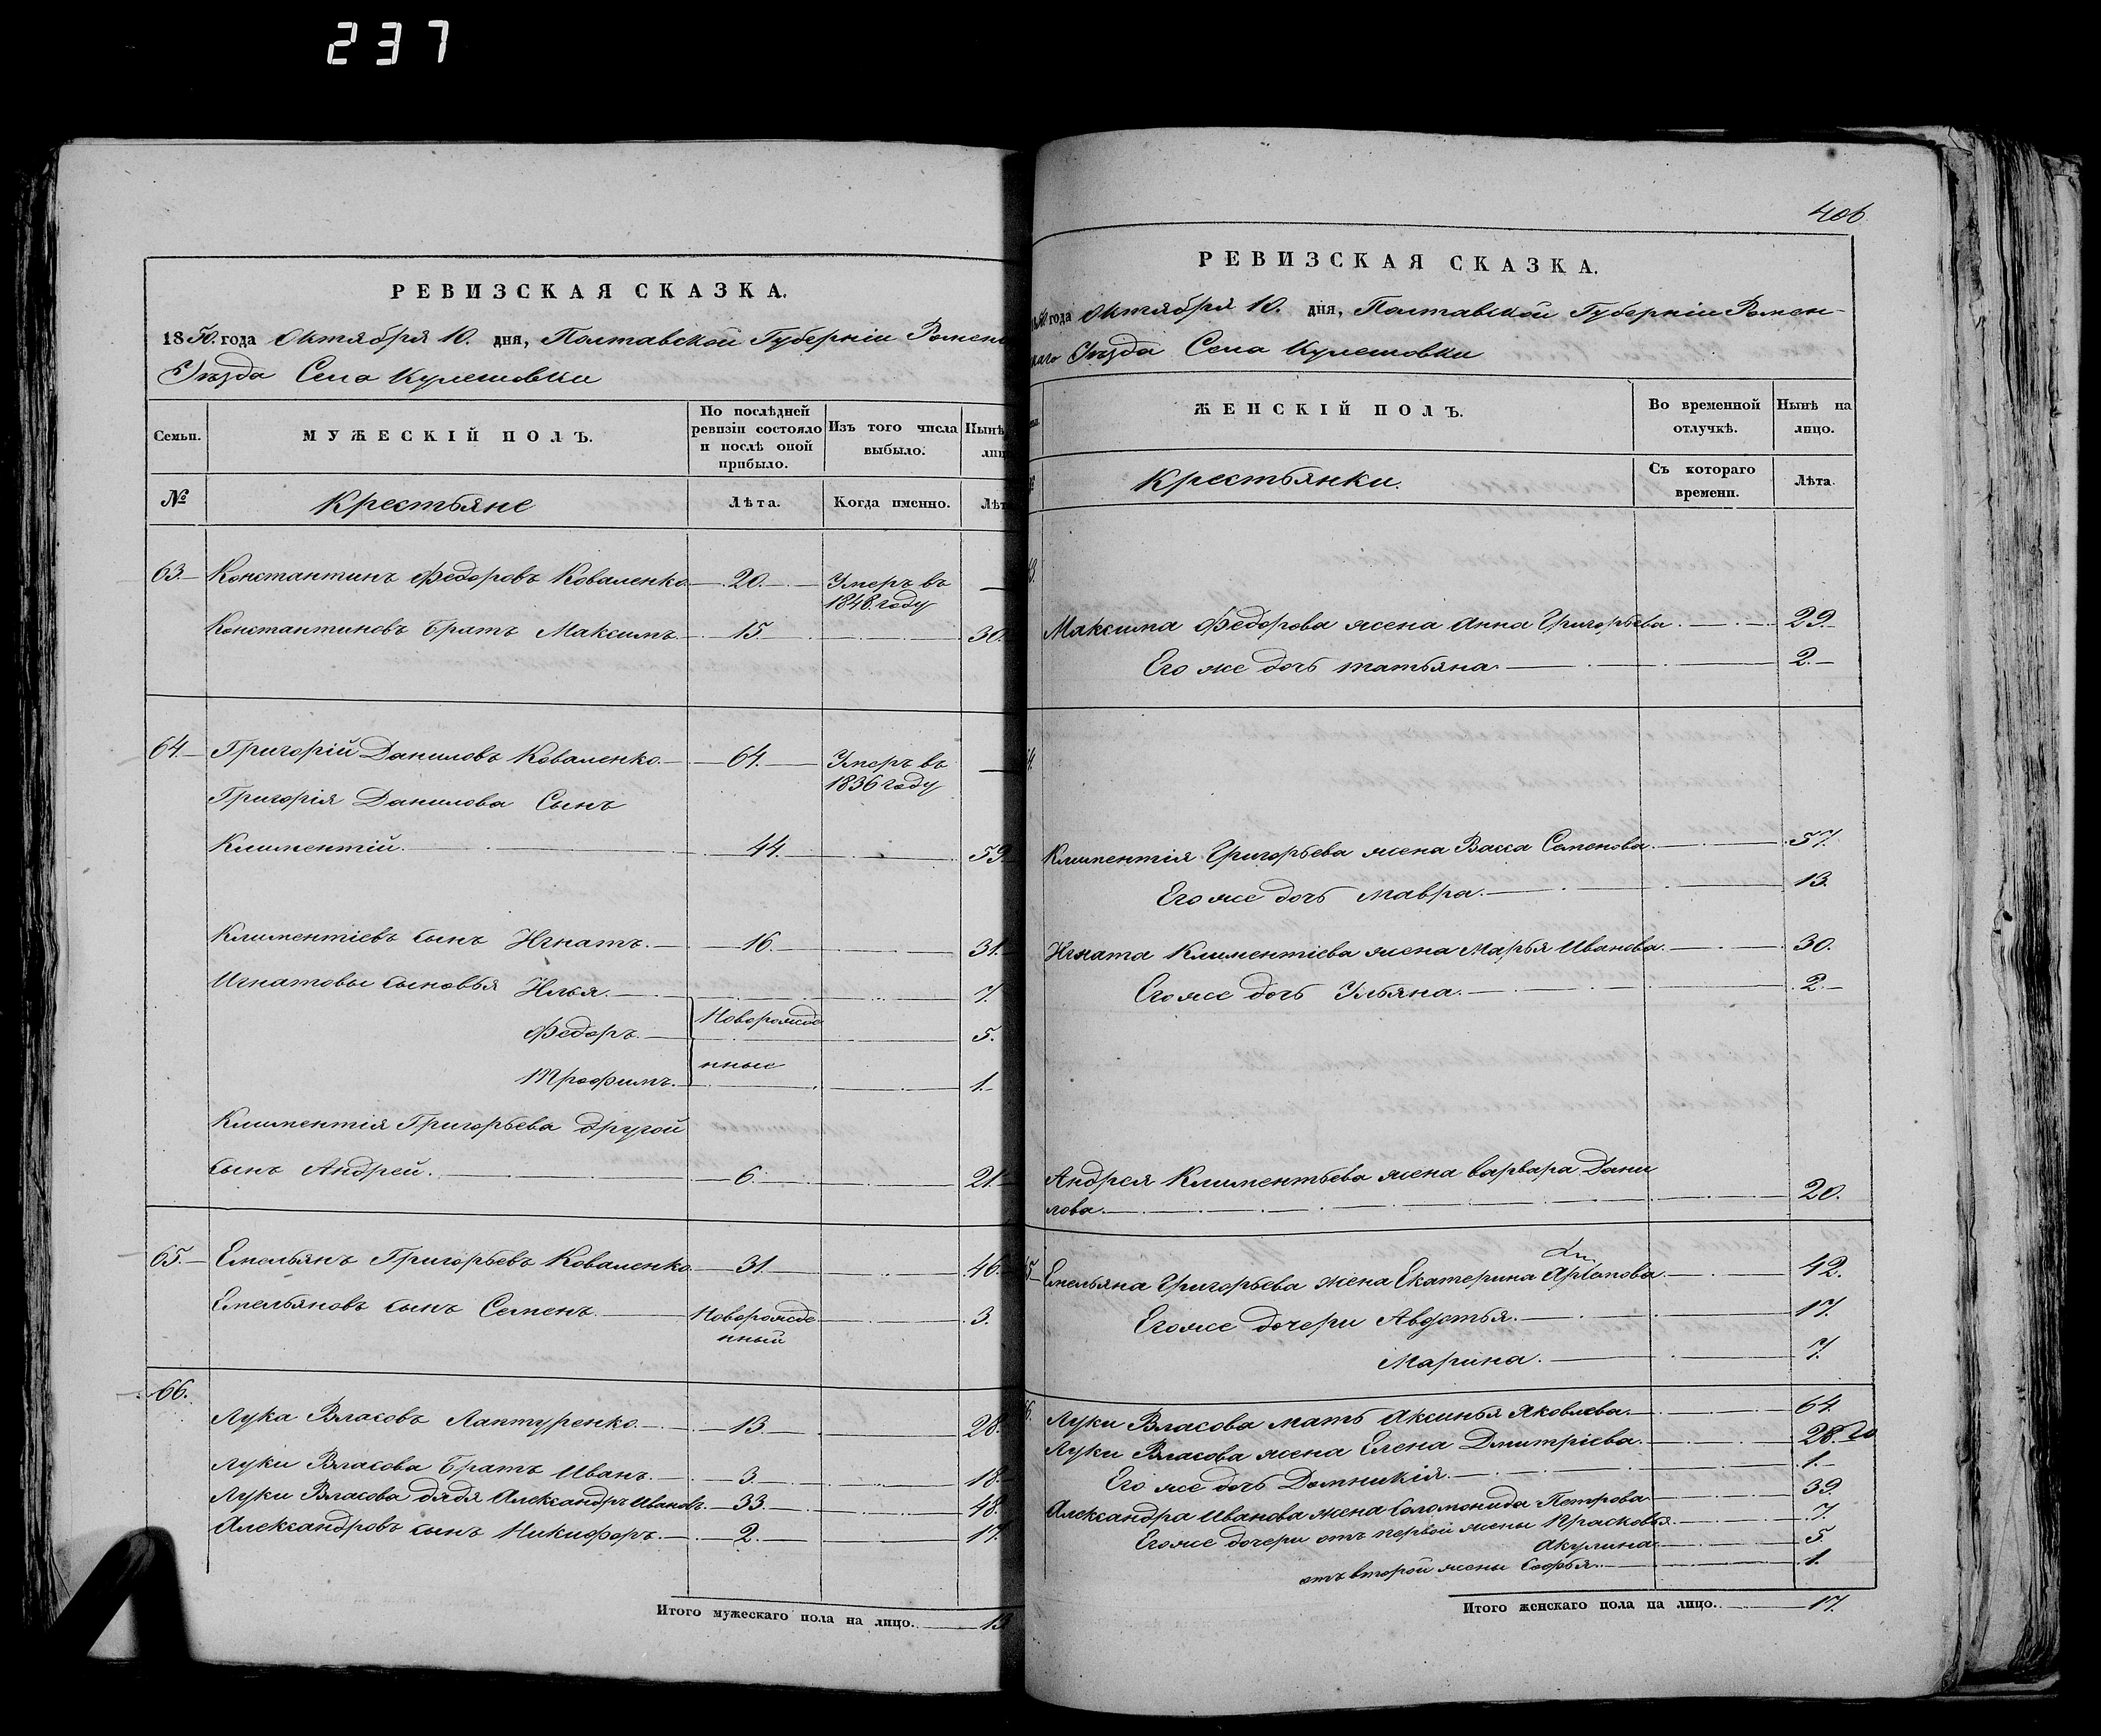 237
РЕВИЗСКАЯ СКАЗКА.
1850. года Октября 10. дня, Полтавской Губерніи Ромен
Уѣзда Села Кулешовки
Семьи.
МУЖЕСКІЙ ПОЛЪ.
По послѣдней ревизіи состояло и послѣ оной прибыло.
Изъ того числа выбыло.
Нынѣ лиц
№
Крестьяне
Лѣта.
Когда именно.
Лѣт
63. Константинъ Федоровъ Коваленко 20. Умеръ въ
1848. году
Константиновъ Братъ Максимъ 15 30.
64. Григорій Даниловъ Коваленко 64. Умеръ въ
1836 году
Григорія Данилова Сынъ
Климентій. 44. 59
Климентіевъ сынъ Игнатъ. 16. 31.
Игнатовы сыновья Илья. 7.
Федоръ. Новорожде 5.
нные
Трофимъ. 1.
Климентія Григорьева другой
сынъ Андрей. 6. 21.
65. Емельянъ Григорьевъ Коваленко 31. 46.
Емельяновъ сынъ Семенъ. Новорожде 3.
нный
66.
Лука Власовъ Лаптуренко. 13. 28.
Луки Власова Братъ Иванъ. 3. 18.
Луки Власова дядя Александръ Ивановъ. 33. 48.
Александровъ сынъ Никифоръ. 2. 17.
Итого мужескаго пола на лицо. 13
406
РЕВИЗСКАЯ СКАЗКА.
года Октября 10. дня, Полтавской Губерніи Ромен-
скаго Уѣзда Села Кулешовки
ЖЕНСКІЙ ПОЛЪ.
Во временной отлучкѣ.
Нынѣ на лицо.
Крестьянки.
Съ котораго времени.
Лѣта.
Максима Федорова жена Анна Григорьева 29.
Его же дочь Татьяна. 2.
Климентія Григорьева жена Васса Семенова. 57.
Его же дочь Мавра. 13.
Игната Климентіева жена Марья Иванова. 30.
Его же дочь Ульяна. 2.
Андрея Климентьева жена Варвара Дани
лова. 20.
Емельяна Григорьева жена Екатерина 42.
Его же дочери Авдотья. 17.
Марина. 7.
Луки Власова мать Аксинья Яковлева. 64.
Луки Власова жена Елена Дмитріева. 28.
Его же дочь Домникія. 1.
Александра Иванова жена Соломонида Петрова 39.
Его же дочери отъ первой жены Прасковья. 7.
Акулина. 5.
отъ второй жены Софья. 1.
Итого женскаго пола на лицо. 17.